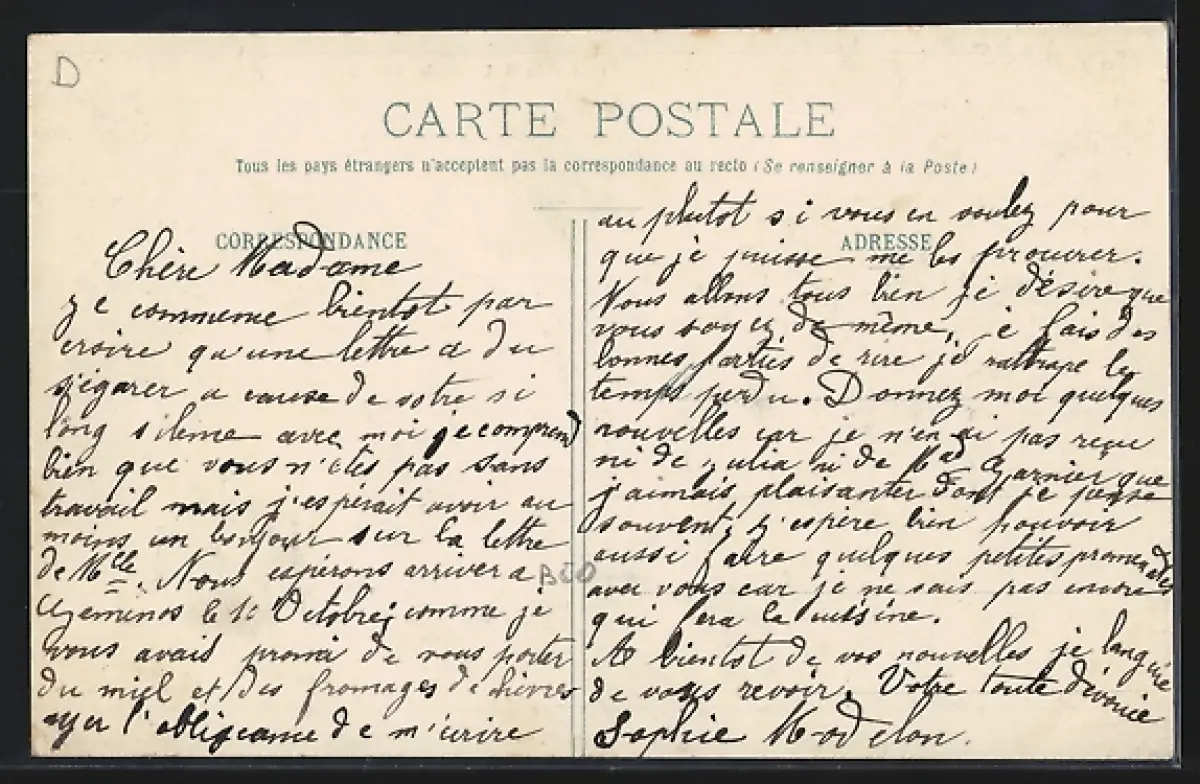 D
CARTE POSTALE
Tous les pays étrangers n'acceptent pas la correspondance au recto (Se renseigner à la Poste)
CORRESPONDANCE
Chère Madame
Je commence bientot par
croire qu'une lettre a du
s'égarer a cause de votre si
long silence avec moi je comprend
bien que vous n'êtes pas sans
travail mais j'espérait avoir au
moins un bonjour sur la lettre
de Mlle. Nous espérons arriver a
Geminos le 10 Octobre, comme je
vous avais promi de vous porter
du miel et des fromages de chèvres
ayez l'obligeance de m'ecrire
BEO
ADRESSE
au plutot si vous en voulez pour
que je puisse me les procurer.
Nous allons tous bien je désire que
vous soyez de même, je fais des
bonnes parties de rire je rattrape le
temps perdu. Donnez moi quelques
nouvelles car je n'en ai pas reçu
ni de Julia ni de Mad Garnier que
j'aimais plaisanter dont je pense
souvent, j'espère bien pouvoir
aussi faire quelques petites promenades
avec vous car je ne sais pas encore
qui fera la cuisine.
A bientot de vos nouvelles je languie
de vous revoir. Votre toute dévouie
Sophie Modelon.